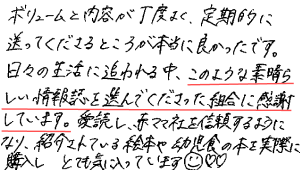 ボリュームと内容が丁度よく、定期的に
送ってくださるところが本当に良かったです。
日々の生活に追われる中、このような素晴ら
しい情報誌を選んでくださった組合に感謝
しています。愛読し、赤ママ社を信頼するように
なり、紹介されている絵本や幼児食の本を実際に
購入し とても気に入っています☺♡♡